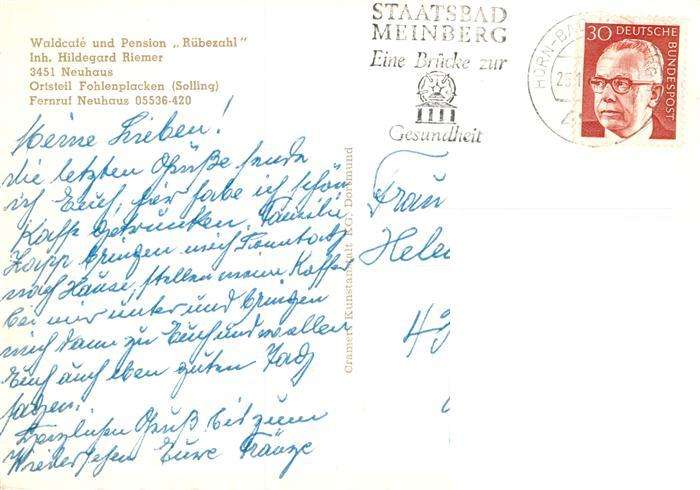 Waldcafé und Pension „Rübezahl"
Inh. Hildegard Riemer
3451 Neuhaus
Ortsteil Fohlenplacken (Solling)
Fernruf Neuhaus 05536-420
STAATSBAD
MEINBERG
Eine Brücke zur
Gesundheit
HORN-BA
30 DEUTSCHE
BUNDESPOST
Meine Lieben!
die letzten Grüße sende
ich Euch, hier habe ich schön
Kaffe getrunken. Familie
Kapp bringen mich Sonntag
nach Hause, stellen meine Koffer
bei mir unter und bringen
mich dann zu Euch und wollen
Euch auch eben guten Tag
sagen.
Herzlichen Gruß bis zum
Wiedersehen Eure Fränze
Cramers Kunstanstalt KG, Dortmund
Frau
Hele